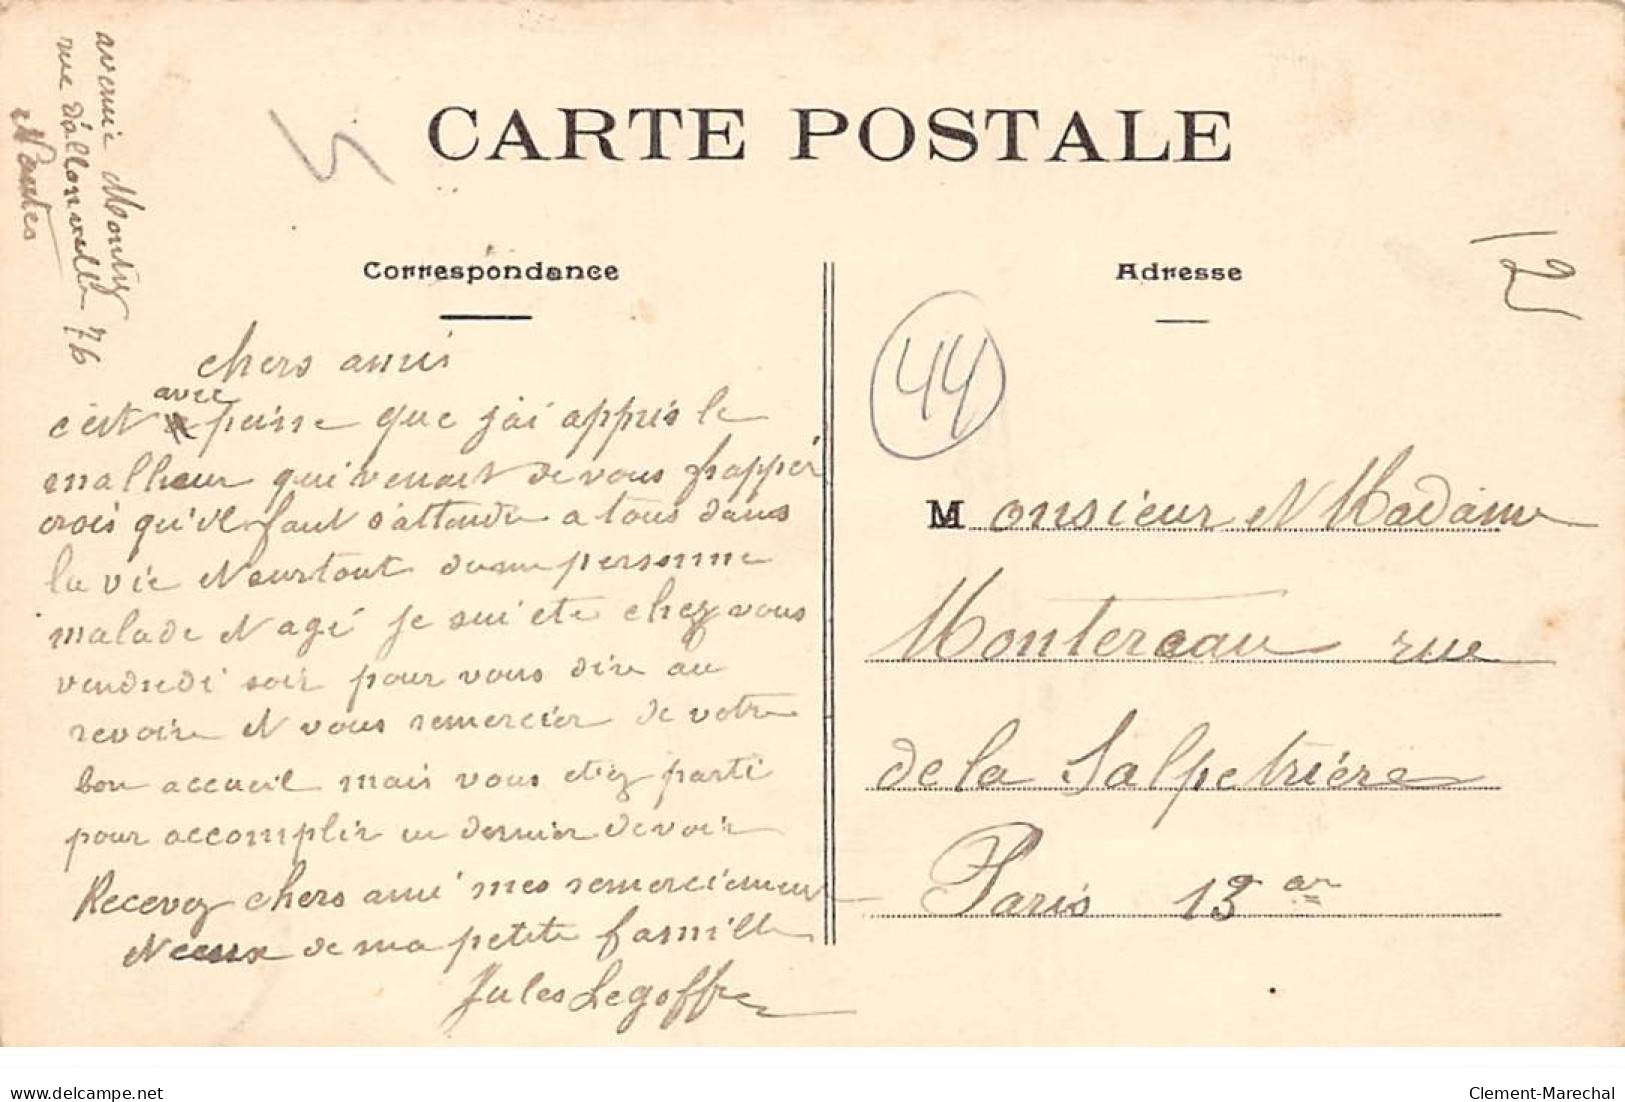 avenue Montry
rue d'allonville 76
Nantes
CARTE POSTALE
Correspondance
Adresse
12
44
chers amis
avec
c'est peine que j'ai appris le
malheur qui venait de vous frapper
crois qu'il faut s'attendre a tous dans
la vie et surtout dune personne
malade et agé je sui ete chez vous
vendredi soir pour vous dire au
revoire et vous remercier de votre
bon accueil mais vous etiez parti
pour accomplir un dernier devoir
Recevez chers ami mes remerciement
et ceux de ma petite famille
Jules Legoffre
Monsieur et Madame
Montereau rue
de la Salpetrière
Paris 13 ar
delcampe.net
Clement-Marechal